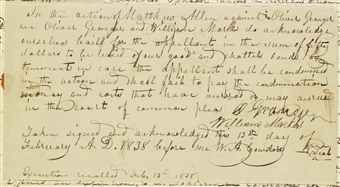 In the action of Matthew Allen against Oliver Granger
we Oliver Granger and William Marks do acknowledge
ourselves bail for the appellant in the sum of fifty
dollars to be levied of our goods and chattels lands &
tenements in case the appellant shall be condemned
in the action and shall fail to pay the condemnation
money and costs that have accrued or may accrue
in the court of common pleas O Granger
William Marks
Taken signed and acknowledged this 13th day of
February A. D. 1838 before me W. Cowdery
Execution recalled Feb. 13th 1838